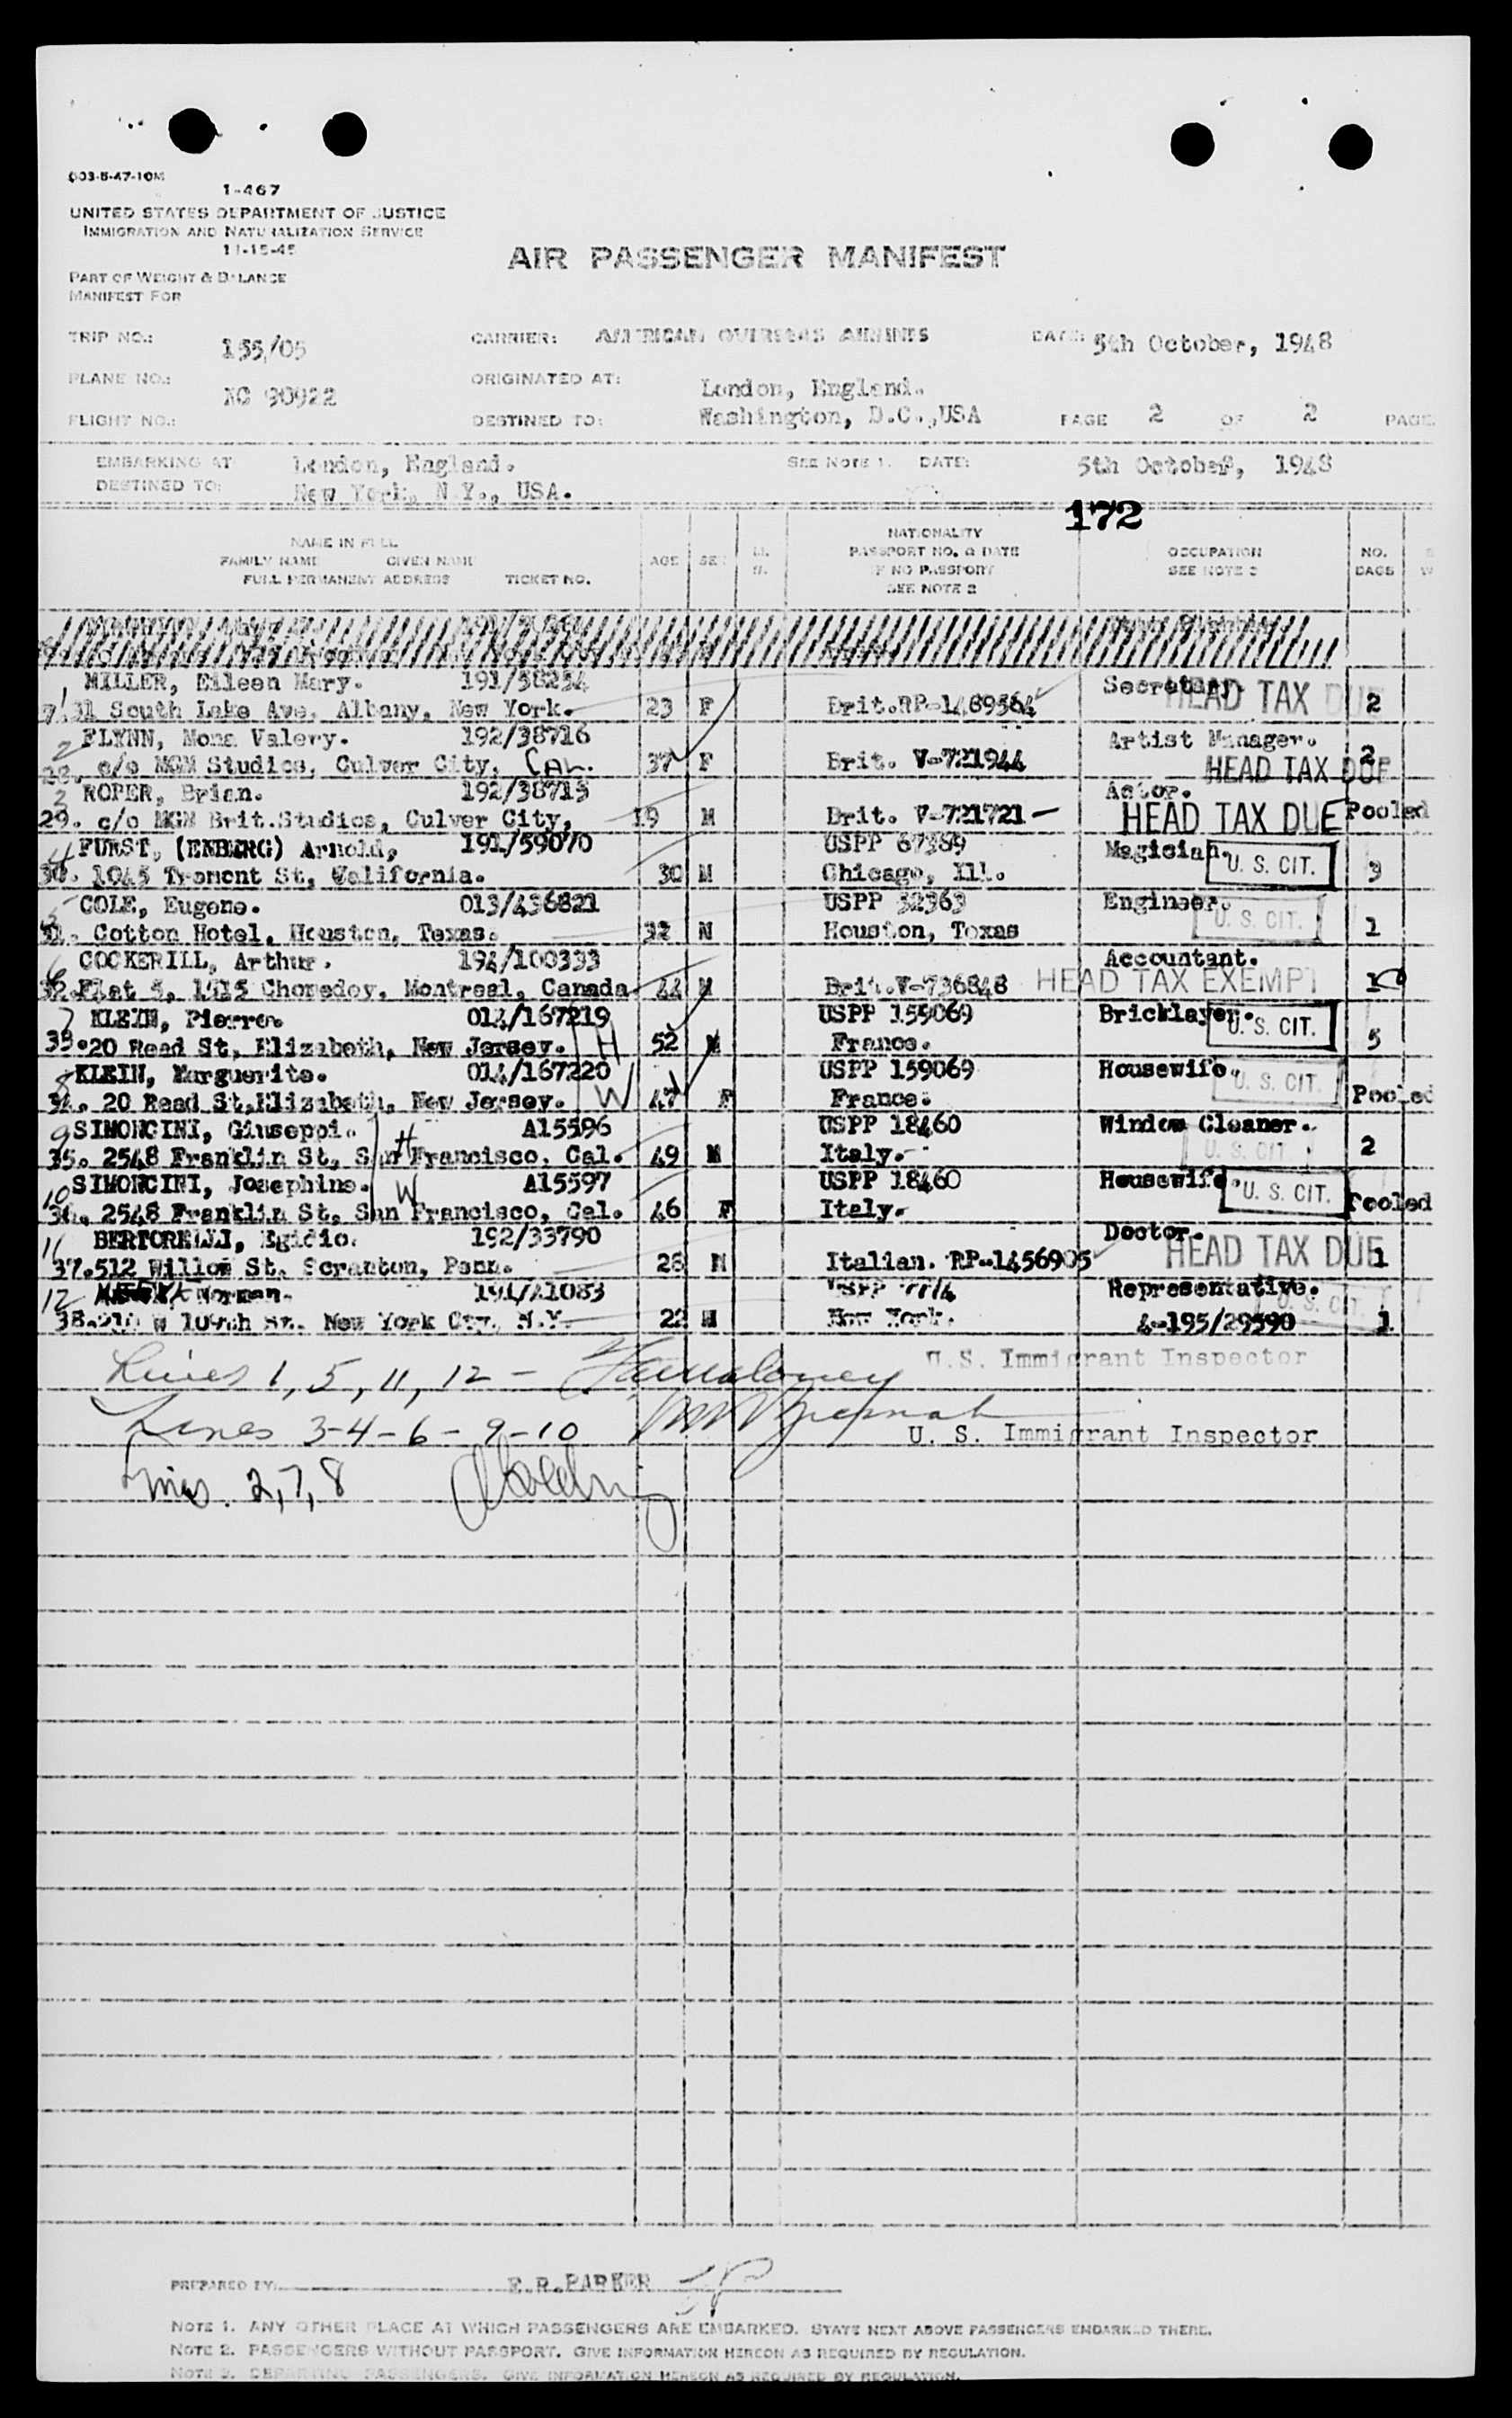 003-5-47-10M
1-467
UNITED STATES DEPARTMENT OF JUSTICE
IMMIGRATION AND NATURALIZATION SERVICE
11-15-45
AIR PASSENGER MANIFEST
PART OF WEIGHT & BALANCE
MANIFEST FOR
TRIP NO.: 155/05 CARRIER: AMERICAN OVERSEAS AIRLINES DATE: 5th October, 1948
PLANE NO.: NC 90922 ORIGINATED AT: London, England.
FLIGHT NO.: DESTINED TO: Washington, D.C.,USA PAGE 2 OF 2 PAGE
EMBARKING AT London, England. SEE NOTE 1. DATE: 5th October, 1948
DESTINED TO: New York, N.Y., USA.
172
NAME IN FULL
FAMILY NAME GIVEN NAME
FULL PERMANENT ADDRESS TICKET NO.
AGE SEX
NATIONALITY
PASSPORT NO. & DATE
IF NO PASSPORT
SEE NOTE 2
OCCUPATION
SEE NOTE 3
NO.
BAGS
1 MILLER, Eileen Mary. 191/58254 Secretary. HEAD TAX DUE
31 South Lake Ave, Albany, New York. 23 F Brit.RP-1489564 2
2 FLYNN, Mona Valery. 192/38716 Artist Manager.
28. c/o MGM Studios, Culver City, CAL. 37 F Brit. V-721944 HEAD TAX DUE 2
3 ROPER, Brian. 192/38715 Actor.
29. c/o MGM Brit.Studios, Culver City, 19 M Brit. V-721721 HEAD TAX DUE Pooled
4 FURST, (ENBURG) Arnold, 191/59070 USPP 67389 Magician. U. S. CIT.
30. 1045 Tremont St, California. 30 M Chicago, Ill. 3
5 COLE, Eugene. 013/436821 USPP 32363 Engineer. U. S. CIT.
31. Cotton Hotel, Houston, Texas. 32 M Houston, Texas 1
6 COCKERILL, Arthur. 194/100333 Accountant.
32. Flat 5, 1515 Chomedey, Montreal, Canada 44 M Brit.V-736848 HEAD TAX EXEMPT
7 KLEIN, Pierre. 014/167219 USPP 159069 Bricklayer. U. S. CIT.
33. 20 Read St, Elizabeth, New Jersey. H 52 M France. 5
8 KLEIN, Marguerite. 014/167220 USPP 159069 Housewife. U. S. CIT.
34. 20 Read St,Elizabeth, New Jersey. W 47 F France. Pooled
9 SIMONCINI, Giuseppi. A15596 USPP 18460 Window Cleaner. U. S. CIT.
35. 2548 Franklin St, San Francisco, Cal. H 49 M Italy. 2
10 SIMONCINI, Josephine. W A15597 USPP 18460 Housewife. U. S. CIT.
36. 2548 Franklin St, San Francisco, Cal. 46 F Italy. Pooled
11 BERTORELLI, Egidio. 192/33790 Doctor. HEAD TAX DUE
37. 512 Willow St. Scranton, Penn. 28 M Italian. RP-1456905 1
12 Norman. 191/A1083 USPP Representative. U. S. CIT.
38. W St. New York Cty, N.Y. 22 M New York. 4-195/29590 1
Lines 1, 5, 11, 12 - U.S. Immigrant Inspector
Lines 3-4-6-9-10 U. S. Immigrant Inspector
Lines. 2,7,8
PREPARED BY: E.R.PARKER
NOTE 1. ANY OTHER PLACE AT WHICH PASSENGERS ARE EMBARKED. STATE NEXT ABOVE PASSENGERS EMBARKED THERE.
NOTE 2. PASSENGERS WITHOUT PASSPORT. GIVE INFORMATION HEREON AS REQUIRED BY REGULATION.
NOTE 3. DEPARTING PASSENGERS. GIVE INFORMATION HEREON AS REQUIRED BY REGULATION.